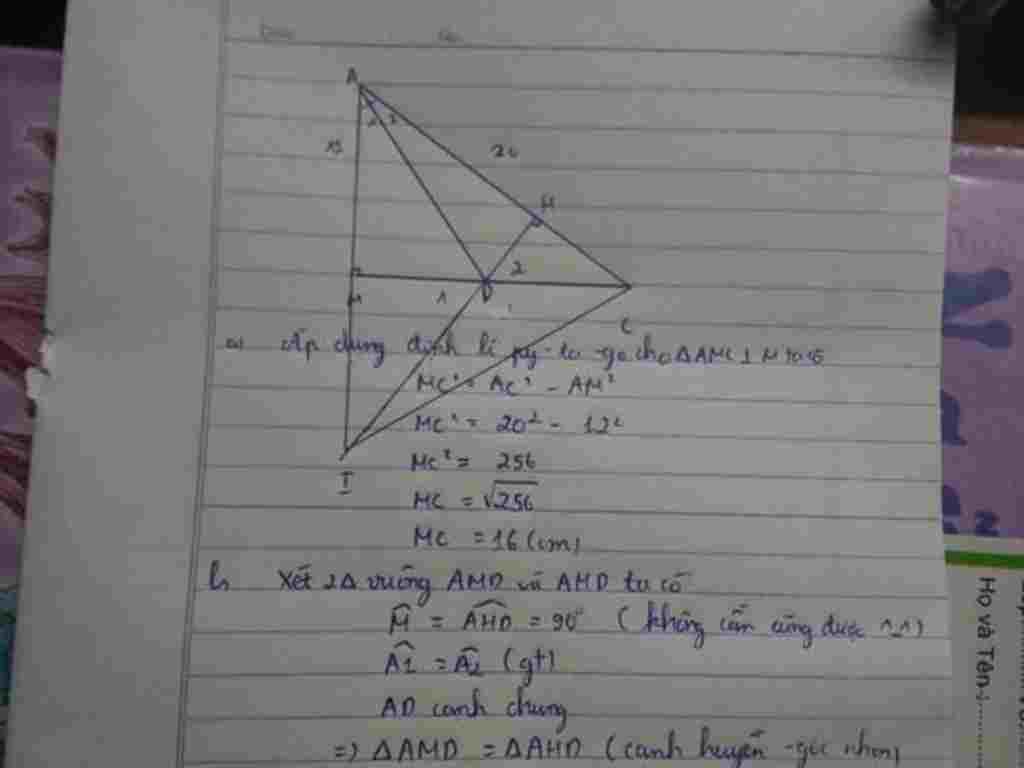 A
1 2
20
H
M
1
D
2
C
I
a) Áp dụng định lí py-ta-go cho ΔAMC ⊥ M ta có
MC² = AC² - AM²
MC² = 20² - 12²
MC² = 256
MC = √256
MC = 16 (cm)
b, Xét 2Δ vuông AMD và AHD ta có
M̂ = AĤD = 90° (không cần cũng được ^_^)
Â1 = Â2 (gt)
AD cạnh chung
=> ΔAMD = ΔAHD (cạnh huyền - góc nhọn)
Họ và Tên: